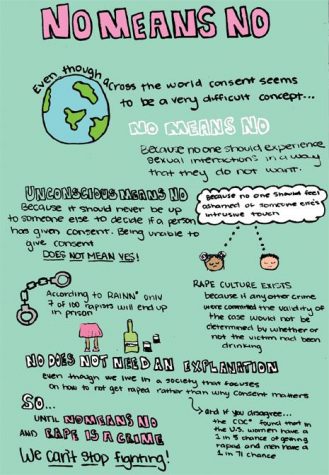 NO MEANS NO
Even though across the world consent seems
to be a very difficult concept...
NO MEANS NO
Because no one should experience
sexual interactions in a way
that they do not want.
UNCONSCIOUS MEANS NO
Because it should never be up
to someone else to decide if a person
has given consent. Being unable to
give consent
DOES NOT MEAN YES!
Because no one should feel
ashamed of someone else's
intrusive touch
According to RAINN* only
7 of 100 rapists will end up
in prison
RAPE CULTURE EXISTS
because if any other crime
were committed the validity of
the case would not be
determined by whether or
not the victim had been
drinking
NO DOES NOT NEED AN EXPLANATION
even though we live in a society that focuses
on how to not get raped rather than why consent matters
SO...
UNTIL NO MEANS NO
AND RAPE IS A CRIME
We can't stop fighting!
and if you disagree...
the CDC* found that in
the U.S. women have a
1 in 5 chance of getting
raped and men have a
1 in 71 chance